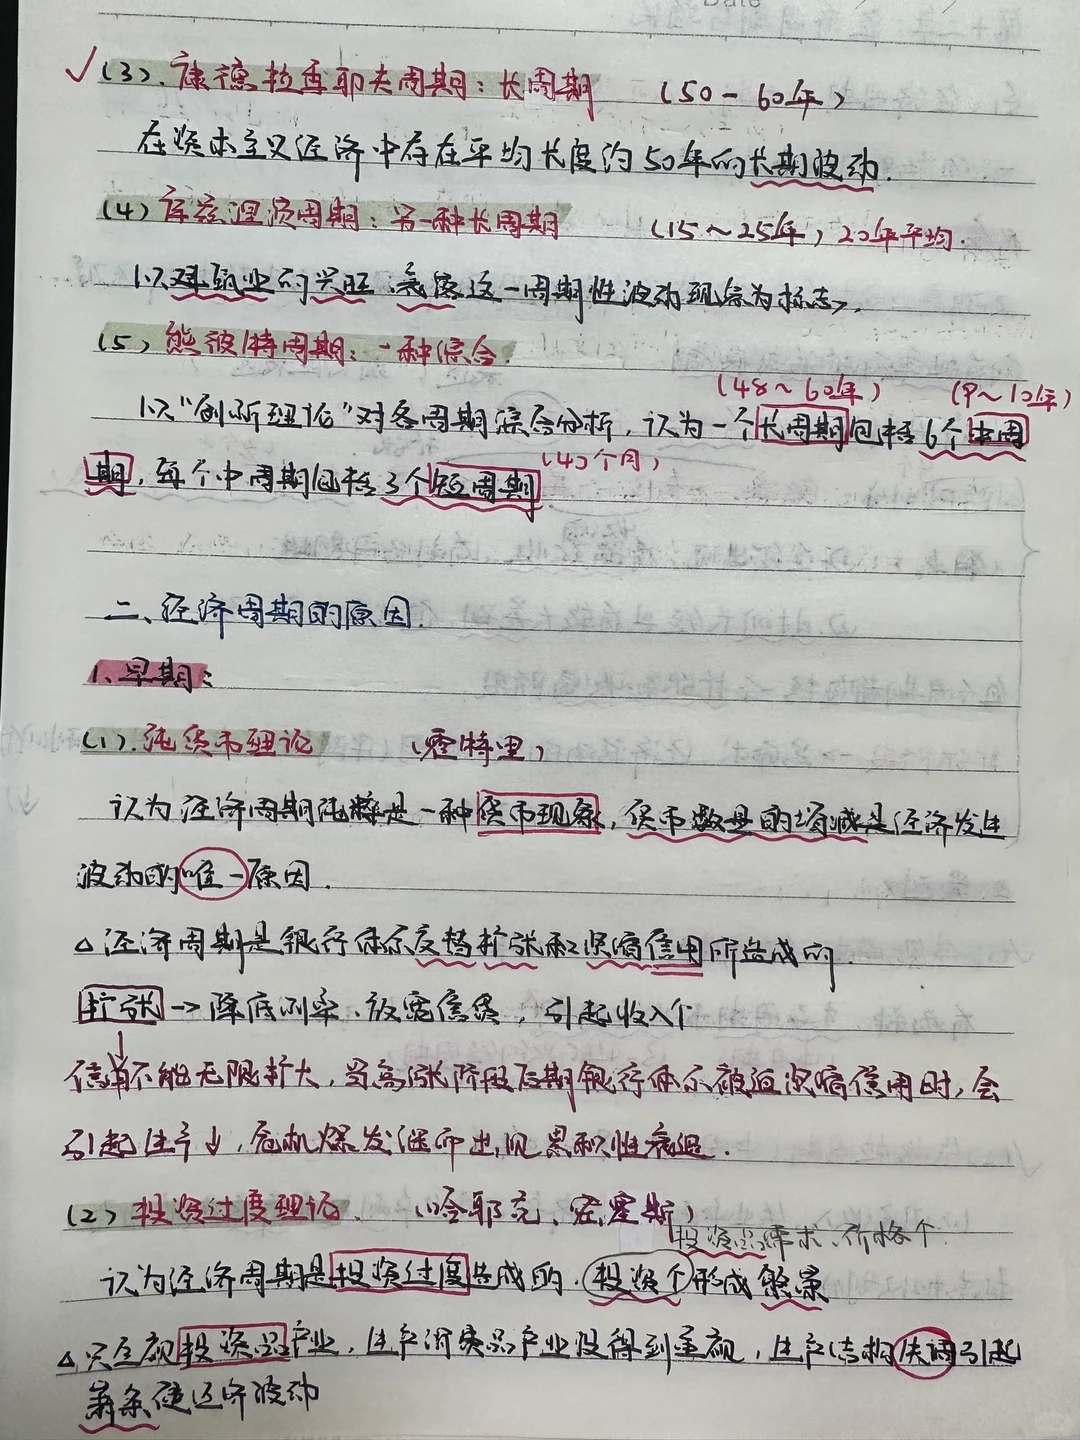 Date
(3).康德拉季耶夫周期：长周期 (50-60年)
在资本主义经济中存在平均长度约50年的长期波动.
(4)库兹涅茨周期：另一种长周期 (15~25年) 20年平均.
以建筑业的兴旺、衰落这一周期性波动现象为标志,
(5)熊彼特周期：一种综合.
(48~60年) (9~10年)
以"创新理论"对各周期综合分析，认为一个长周期包括6个中周
(40个月)
期，每个中周期包括3个短周期
二、经济周期的原因.
1、早期：
(1).纯货币理论 (霍特里)
认为经济周期纯粹是一种货币现象，货币数量的增减是经济发生
波动的唯一原因.
△经济周期是银行体系交替扩张和紧缩信用所造成的.
扩张→降底利率、放宽信贷，引起收入↑
信用不能无限扩大，当高涨阶段后期银行体系被迫紧缩信用时，会
引起生产↓，危机爆发继而出现累积性衰退.
(2)投资过度理论. (哈耶克、
投资品需求、价格↑
认为经济周期是投资过度造成的.投资↑形成繁荣
△只重视投资品产业，生产消费品产业没得到重视，生产结构失调引起
萧条使经济波动